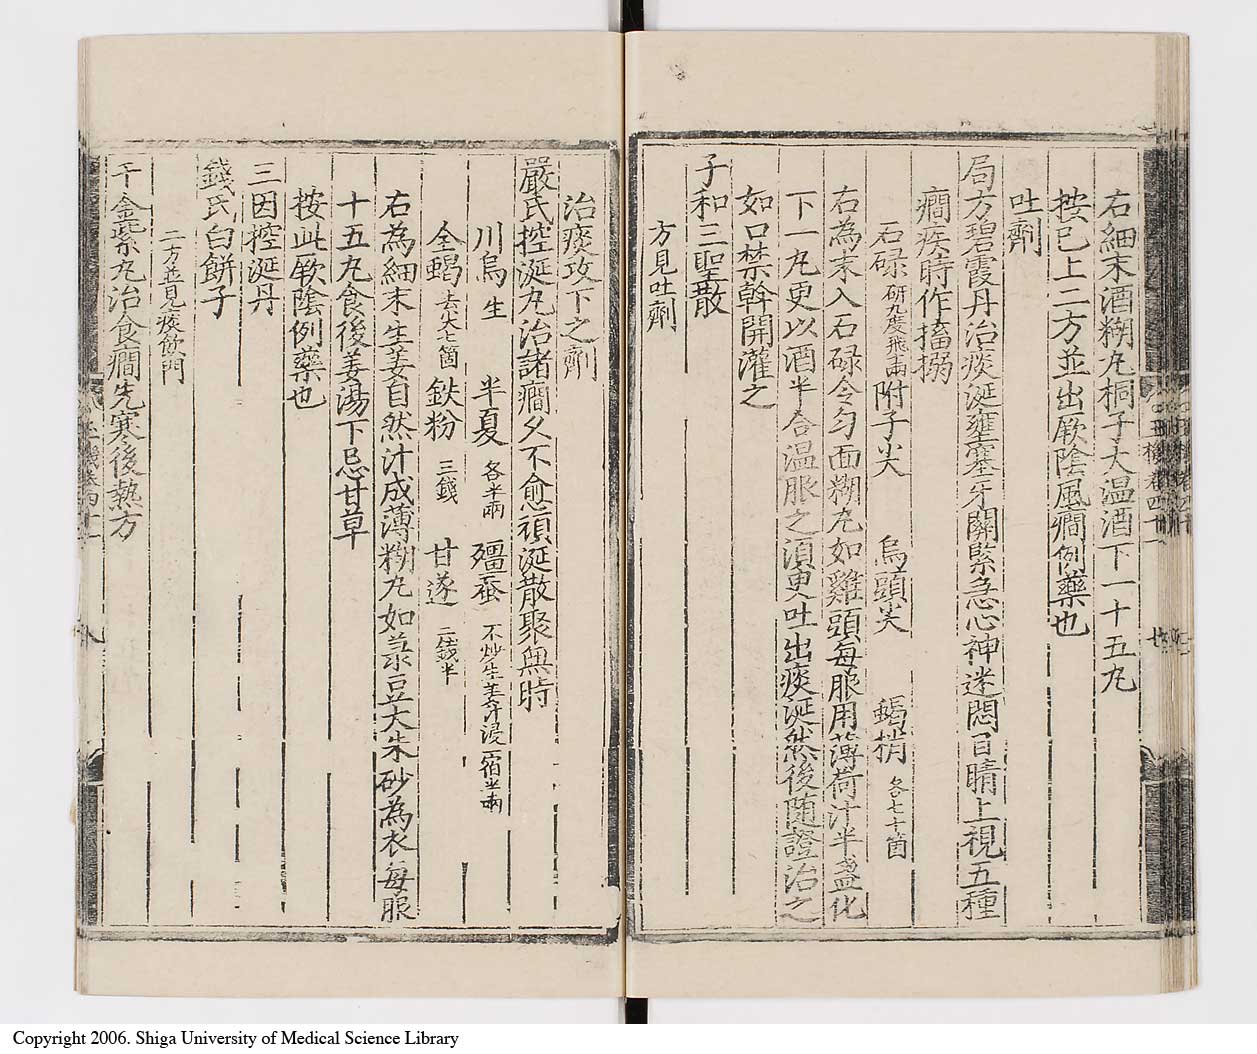 右細末酒糊丸桐子大温酒下一十五丸
按已上二方並出厥陰風癇例藥也
吐劑
局方碧霞丹治痰涎壅塞牙關緊急心神迷悶目睛上視五種
癇疾時作搐搦
石碌研九度飛十兩 附子尖 烏頭尖 蝎梢各七十箇
右為末入石碌令勻面糊丸如雞頭每服用薄荷汁半盞化
下一丸更以酒半合温服之湏臾吐出痰涎然後随證治之
如口禁斡開灌之
子和三聖散
方見吐劑
治痰攻下之劑
嚴氏控涎丸治諸癇久不愈頑涎散聚無時
川烏生 半夏各半兩 殭蚕不炒生姜汁浸一宿半兩
全蝎去尖七箇 鉄粉三錢 甘遂二錢半
右為細末生姜自然汁成薄糊丸如菉豆大朱砂為衣每服
十五丸食後姜湯下忌甘草
按此厥隂例藥也
三因控涎丹
錢氏白餅子
二方並見痰飲門
千金紫丸治食癇先寒後熱方
Copyright 2006. Shiga University of Medical Science Library